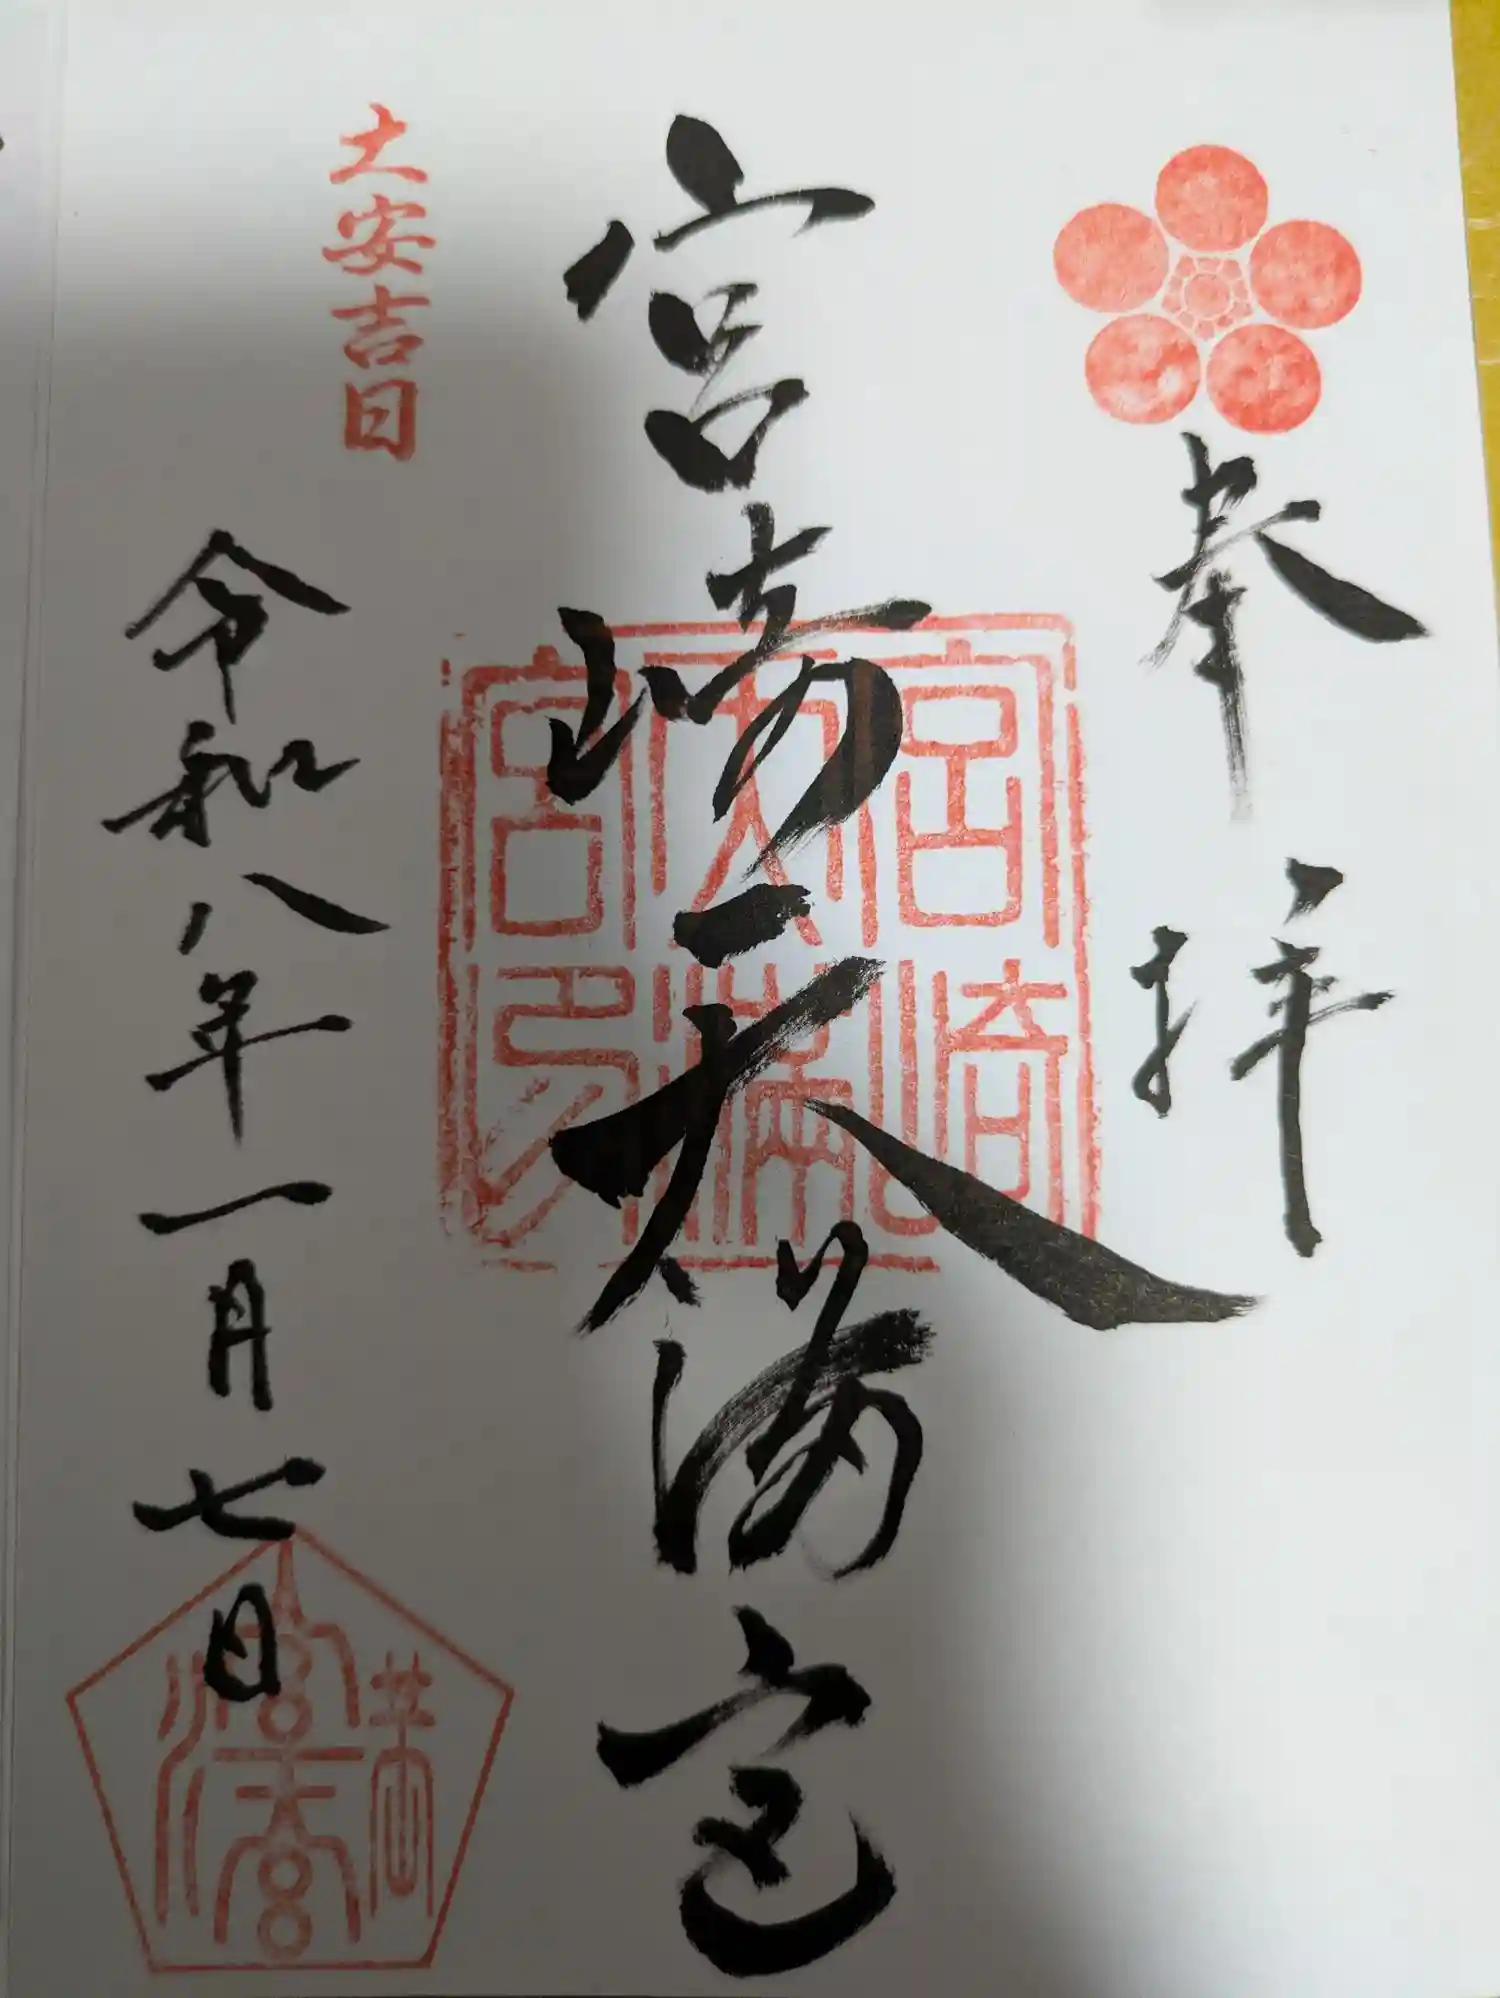 奉拝
宮崎天満宮
宮崎
天満
宮印
大安吉日
令和八年一月七日